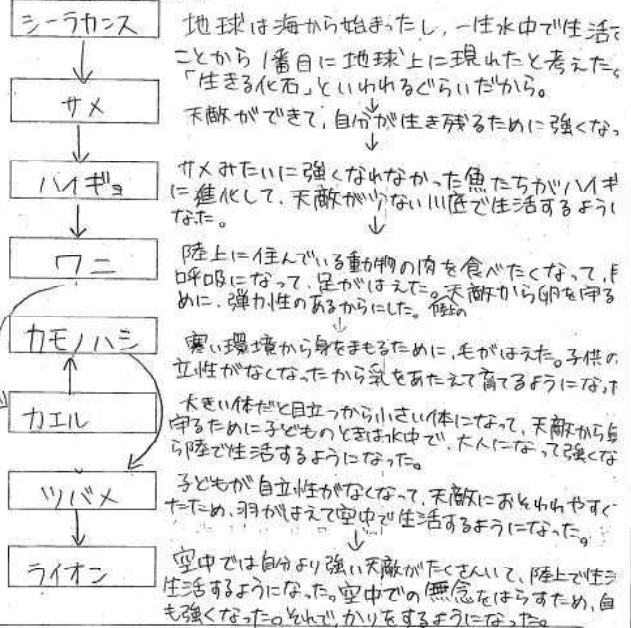 シーラカンス
地球は海から始まったし、一生水中で生活で
ことから1番目に地球上に現れたと考えた。
「生きる化石」といわれるぐらいだから。
サメ
天敵ができて、自分が生き残るために強くなっ
ハイギョ
サメみたいに強くなれなかった魚たちがハイギ
に進化して、天敵が少ない川底で生活するよう
なった。
ワニ
陸上に住んでいる動物の肉を食べたくなって、
呼吸になって、足がはえた。天敵から卵を守る
めに、弾力性のあるからにした。陸上の
カモノハシ
寒い環境から身をまもるために、毛がはえた。子供の
立性がなくなったから乳をあたえて育てるようになった
カエル
大きい体だと目立つから小さい体になって、天敵から身
守るために子どものときは水中で、大人になって強くな
ら陸で生活するようになった。
ツバメ
子どもが自立性がなくなって、天敵におそわれやすく
たため、羽がはえて空中で生活するようになった。
ライオン
空中では自分より強い天敵がたくさんいて、陸上で生活
生活するようになった。空中での無念をはらすため、自
も強くなった。それで、かりをするようになった。